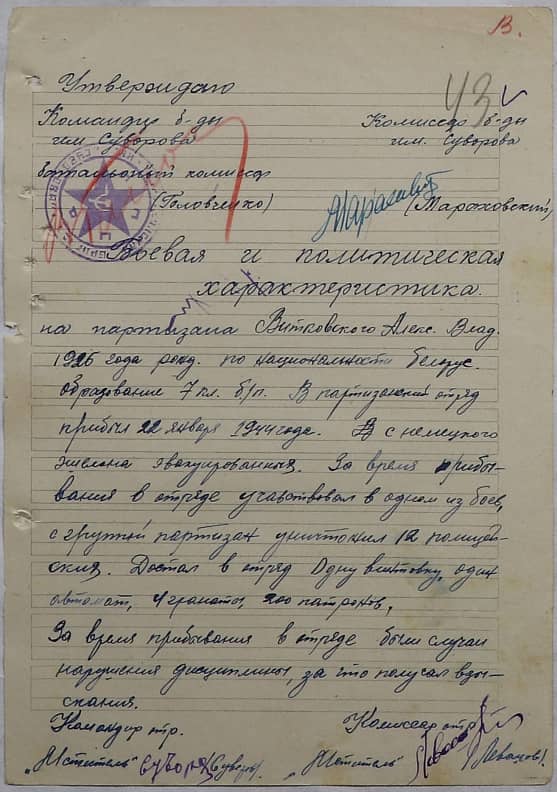 В.
43
Утверждаю
Командир б-ды Комиссар б-ды
им. Суворова им. Суворова
батальонный комиссар
(Головченко) (Мараховский)
Боевая и политическая
характеристика.
на партизана Витковского Алекс. Влад.
1926 года рожд. по национальности белорус.
образование 7 кл. б/п. В партизанский отряд
прибыл 22 января 1944 годе. с немецкого
эшелона эвакуированных. За время прибы-
вания в отряде учавствовал в одном из боев,
с группой партизан уничтожил 12 полицей-
ских. Достал в отряд Одну винтовку, один
автомат, 4 гранаты, 200 патронов.
За время прибывания в отряде были случаи
нарушения дисциплины, за что получал взы-
скания.
Командир отр. Комиссар отр.
"Мститель" (Суворов). "Мститель" (Левашов).